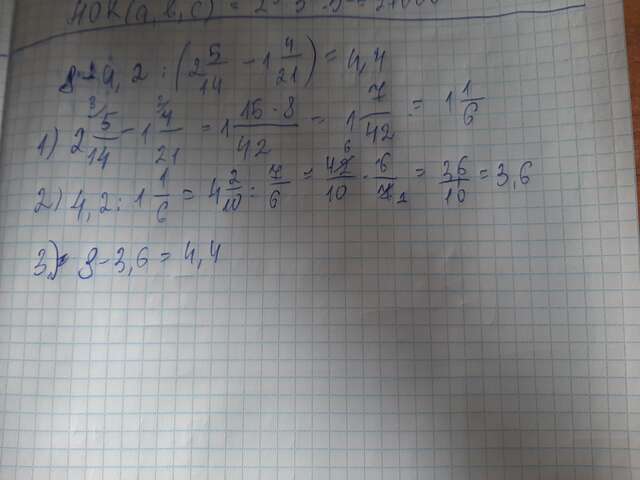 НОК(a, b, c) =
8 - 4,2 : (2 5/14 - 1 4/21) = 4,4
1) 2 5/14 - 1 4/21 = 1 (15 - 8)/42 = 1 7/42 = 1 1/6
2) 4,2 : 1 1/6 = 4 2/10 : 7/6 = 42/10 · 6/7 = 36/10 = 3,6
3) 8 - 3,6 = 4,4